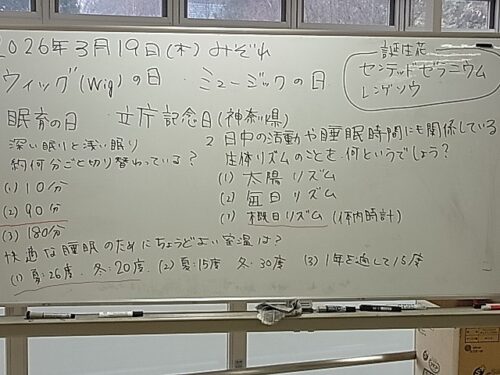 2026年3月19日(木) みぞれ
誕生花
センテッドゼラニウム
レンゲソウ
ウィッグ(Wig)の日 ミュージックの日
眠育の日 立庁記念日(神奈川県)
深い眠りと浅い眠り
約何分ごと切り替わっている?
(1) 10分
(2) 90分
(3) 180分
2 日中の活動や睡眠時間にも関係している
生体リズムのことを何というでしょう?
(1) 太陽リズム
(2) 毎日リズム
(1) 概日リズム (体内時計)
快適な睡眠のためにちょうどよい室温は?
(1) 夏:26度 冬:20度 (2) 夏:15度 冬:30度 (3) 1年を通して15度